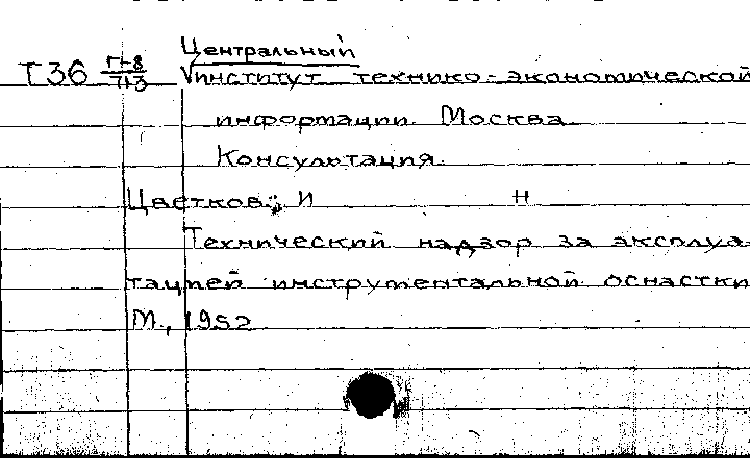 Центральный
Т36 Г-8/713 институт технико-экономической
информации. Москва.
Консультация.
Цветков, И Н
Технический надзор за эксплуа-
тацией инструментальной оснастки
М., 1952